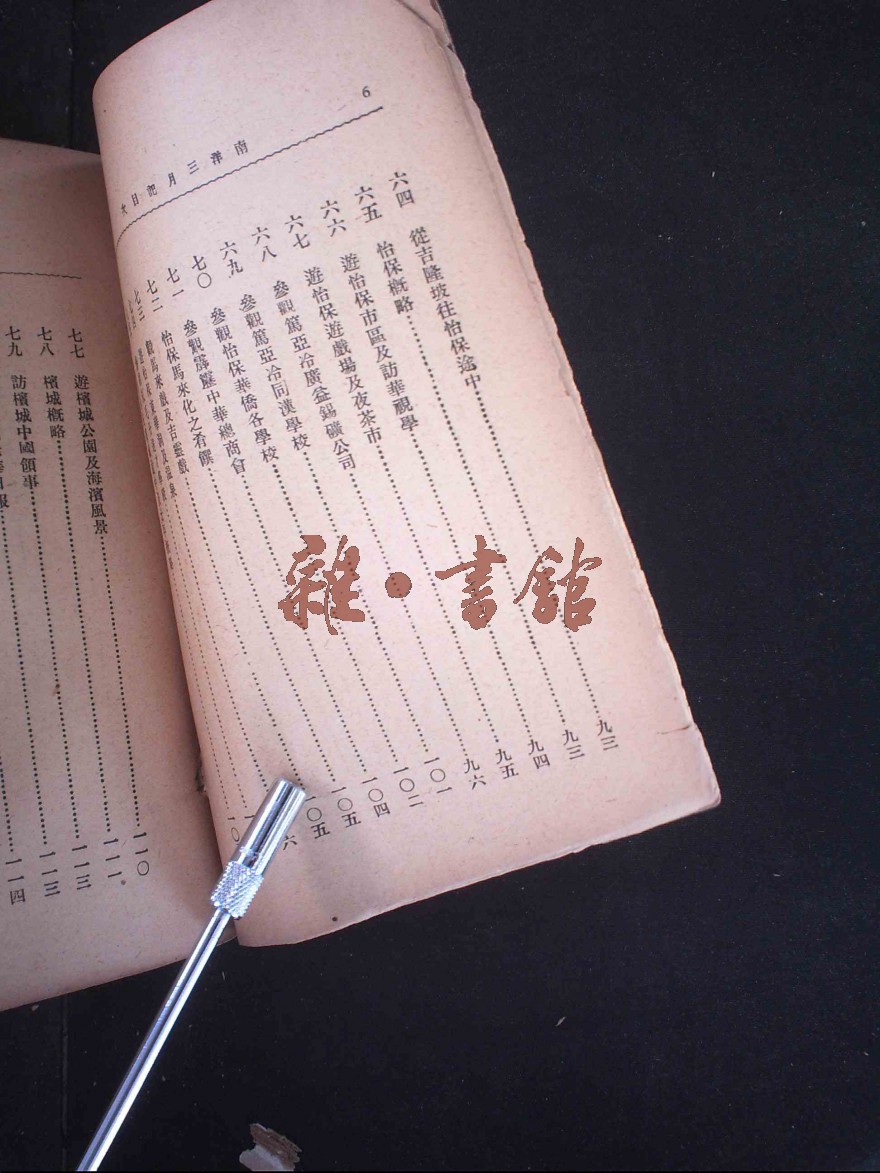 6
南洋三月記目次
六四 從吉隆坡往怡保途中 九三
六五 怡保概略 九三
六六 遊怡保市區及訪華視學 九四
六七 遊怡保遊戲場及夜茶市 九五
六八 參觀篤亞冷廣益錫礦公司 九六
六九 參觀篤亞冷同漢學校 一〇一
七〇 參觀怡保華僑各學校 一〇二
七一 參觀霹靂中華總商會 一〇四
七二 怡保馬來化之肴饌 一〇五
七三 觀馬來戲及吉寧戲 一〇五
七七 遊檳城公園及海濱風景 一一〇
七八 檳城概略
七九 訪檳城中國領事
一一一
一一三
一一三
一一四
雜·書館